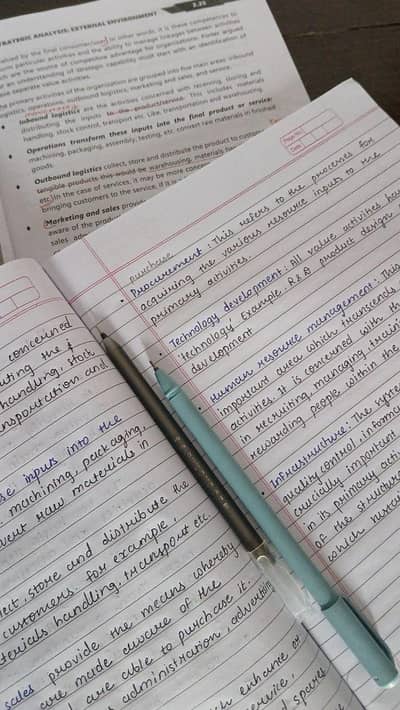 STRATEGIC ANALYSIS: EXTERNAL ENVIRONMENT
2.23
valued by the final consumer/user) In other words, it is these competences to
particular activities and the ability to manage linkages between activities
are the source of competitive advantage for organisations. Porter argued
an understanding of strategic capability must start with an identification of
separate value activities.
primary activities of the organisation are grouped into five main areas: inbound
logistics, operations, outbound logistics, marketing and sales, and service.
Inbound logistics are the activities concerned with receiving, storing and
distributing the inputs to the product/service. This includes materials
handling, stock control, transport etc. Like, transportation and warehousing.
Operations transform these inputs into the final product or service:
machining, packaging, assembly, testing, etc. convert raw materials in finished
goods.
Outbound logistics collect, store and distribute the product to customers.
tangible products this would be warehousing, materials
etc) In the case of services, it may be more
bringing customers to the service, if it is
Marketing and sales
aware of the
sales
Page No.
Date
purchase
Procurement : This refers to the processes for
acquiring the various resource inputs to the
primary activities.
Technology development : All value activities
'technology'. Example. R&D product design
development
Human resource management : This
important area which transcends
activities. It is concerned with
in recruiting, managing,
rewarding people within the
Infrastructure : The
quality control,
crucially important
in its primary
of the
which
concerned
the
handling, stock
and
inputs into the
machining, packaging,
raw materials in
, store and distribute the
customers. For example,
handling, transport etc.
sales provide the means whereby
are made aware of the
are able to purchase it.
administration,
enhance or
service,
and spares